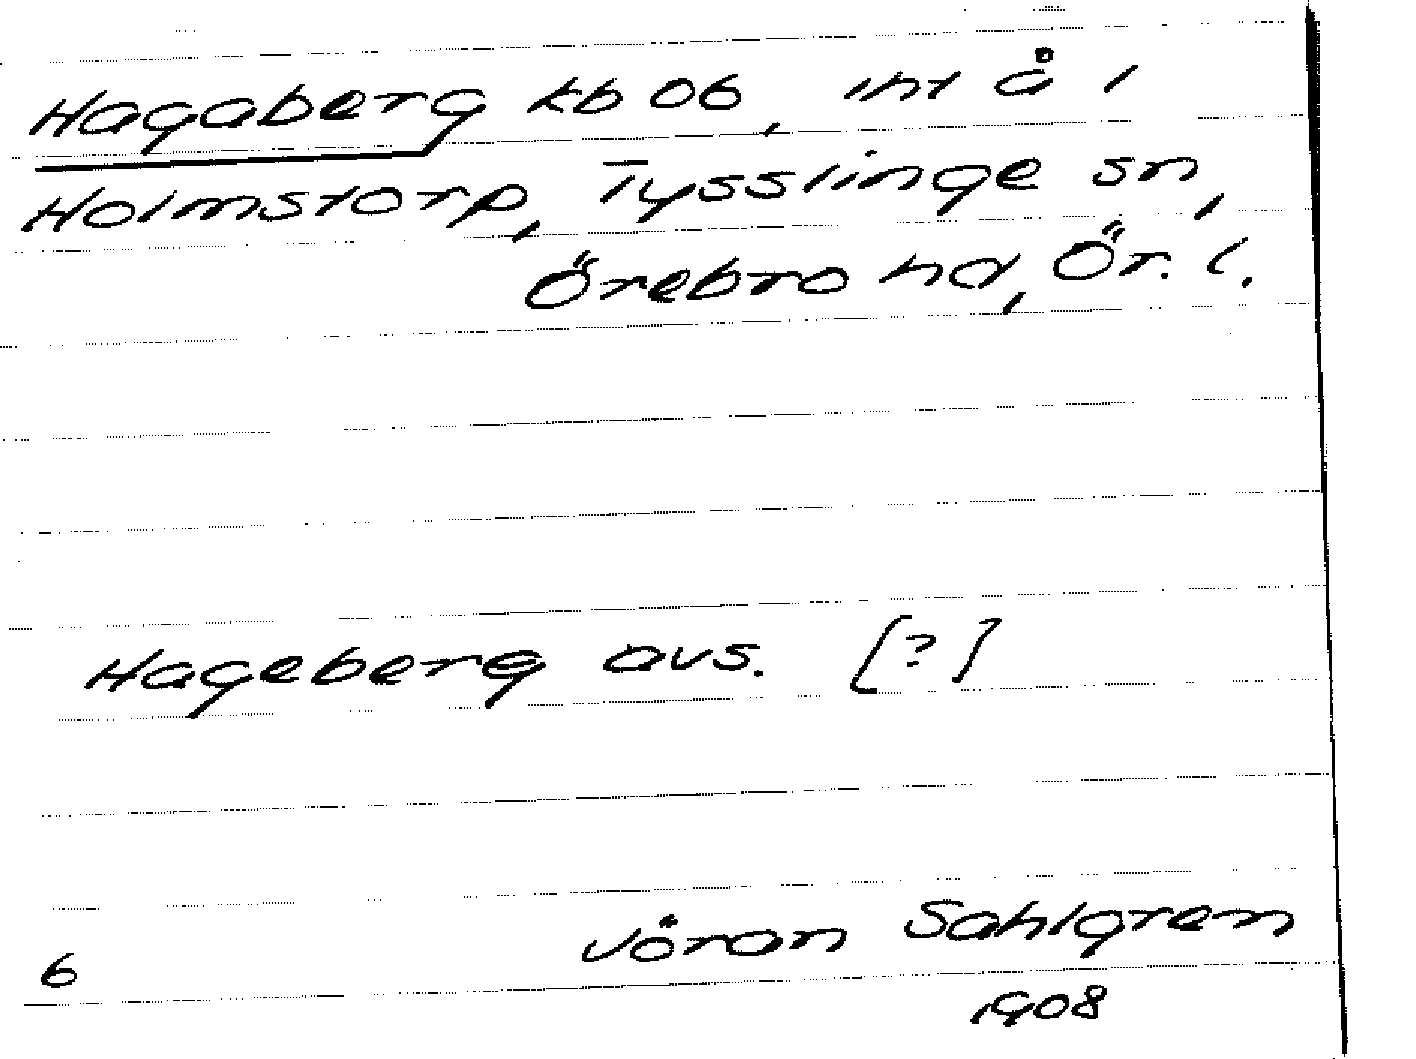 Hagaberg kb 06, int å i
Holmstorp, Tysslinge sn,
Örebro hd, Ör. l.
Hageberg avs. [?]
Jöran Sahlgren
6
1908